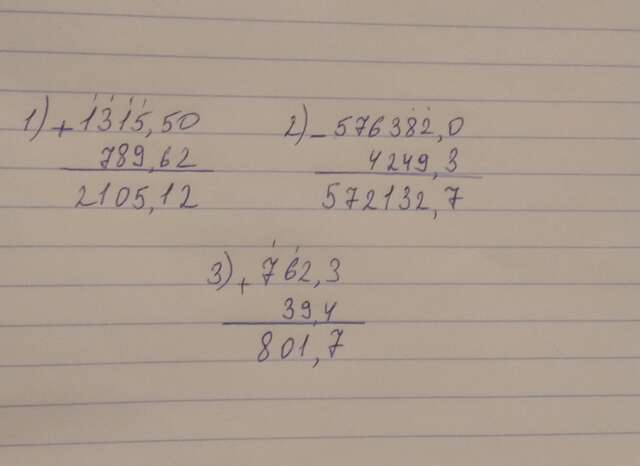 1) + 1315,50
789,62
2105,12
2) - 576382,0
4249,3
572132,7
3) + 762,3
39,4
801,7